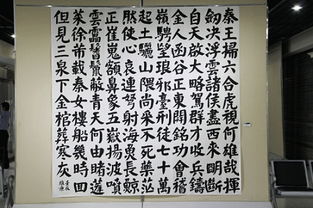 秦王掃六合虎視何雄哉揮
劍決浮雲諸侯盡西來明斷
自天啟大略駕群才收兵鑄
金人函谷正東開銘功會稽
嶺騁望琅邪臺刑徒七十萬
起土驪山隈尚采不死藥茫
然使心哀連弩射海魚長鯨
正崔嵬額鼻象五嶽揚波噴
雲雷鬐鬣蔽青天何由睹蓬
萊徐巿載秦女樓船幾時回
但見三泉下金棺葬寒灰